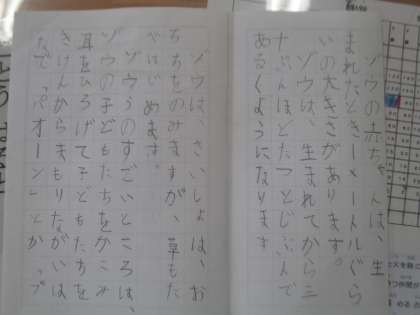 ゾウの赤ちゃんは、生
まれたとき一メートルぐら
いの大きさがあります。
ゾウは、生まれてから三
十ぷんほどたつとじぶんで
あるくようになります
ゾウは、さいしょは、お
ちちをのみますが、草もた
べはじめます。
ゾウのすごいところは、
ゾウの子どもたちをかこみ
耳をひろげて子どもたちを
きけんからまもりながいは
なで「パオーン」とか「プ